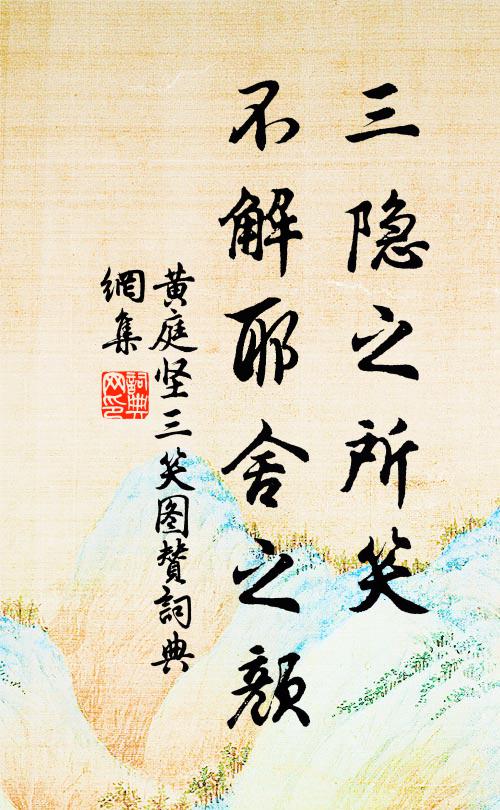 三隐之所笑
不解耶舍之颜
黄庭坚三笑图赞詞典
網集
詞典
网印